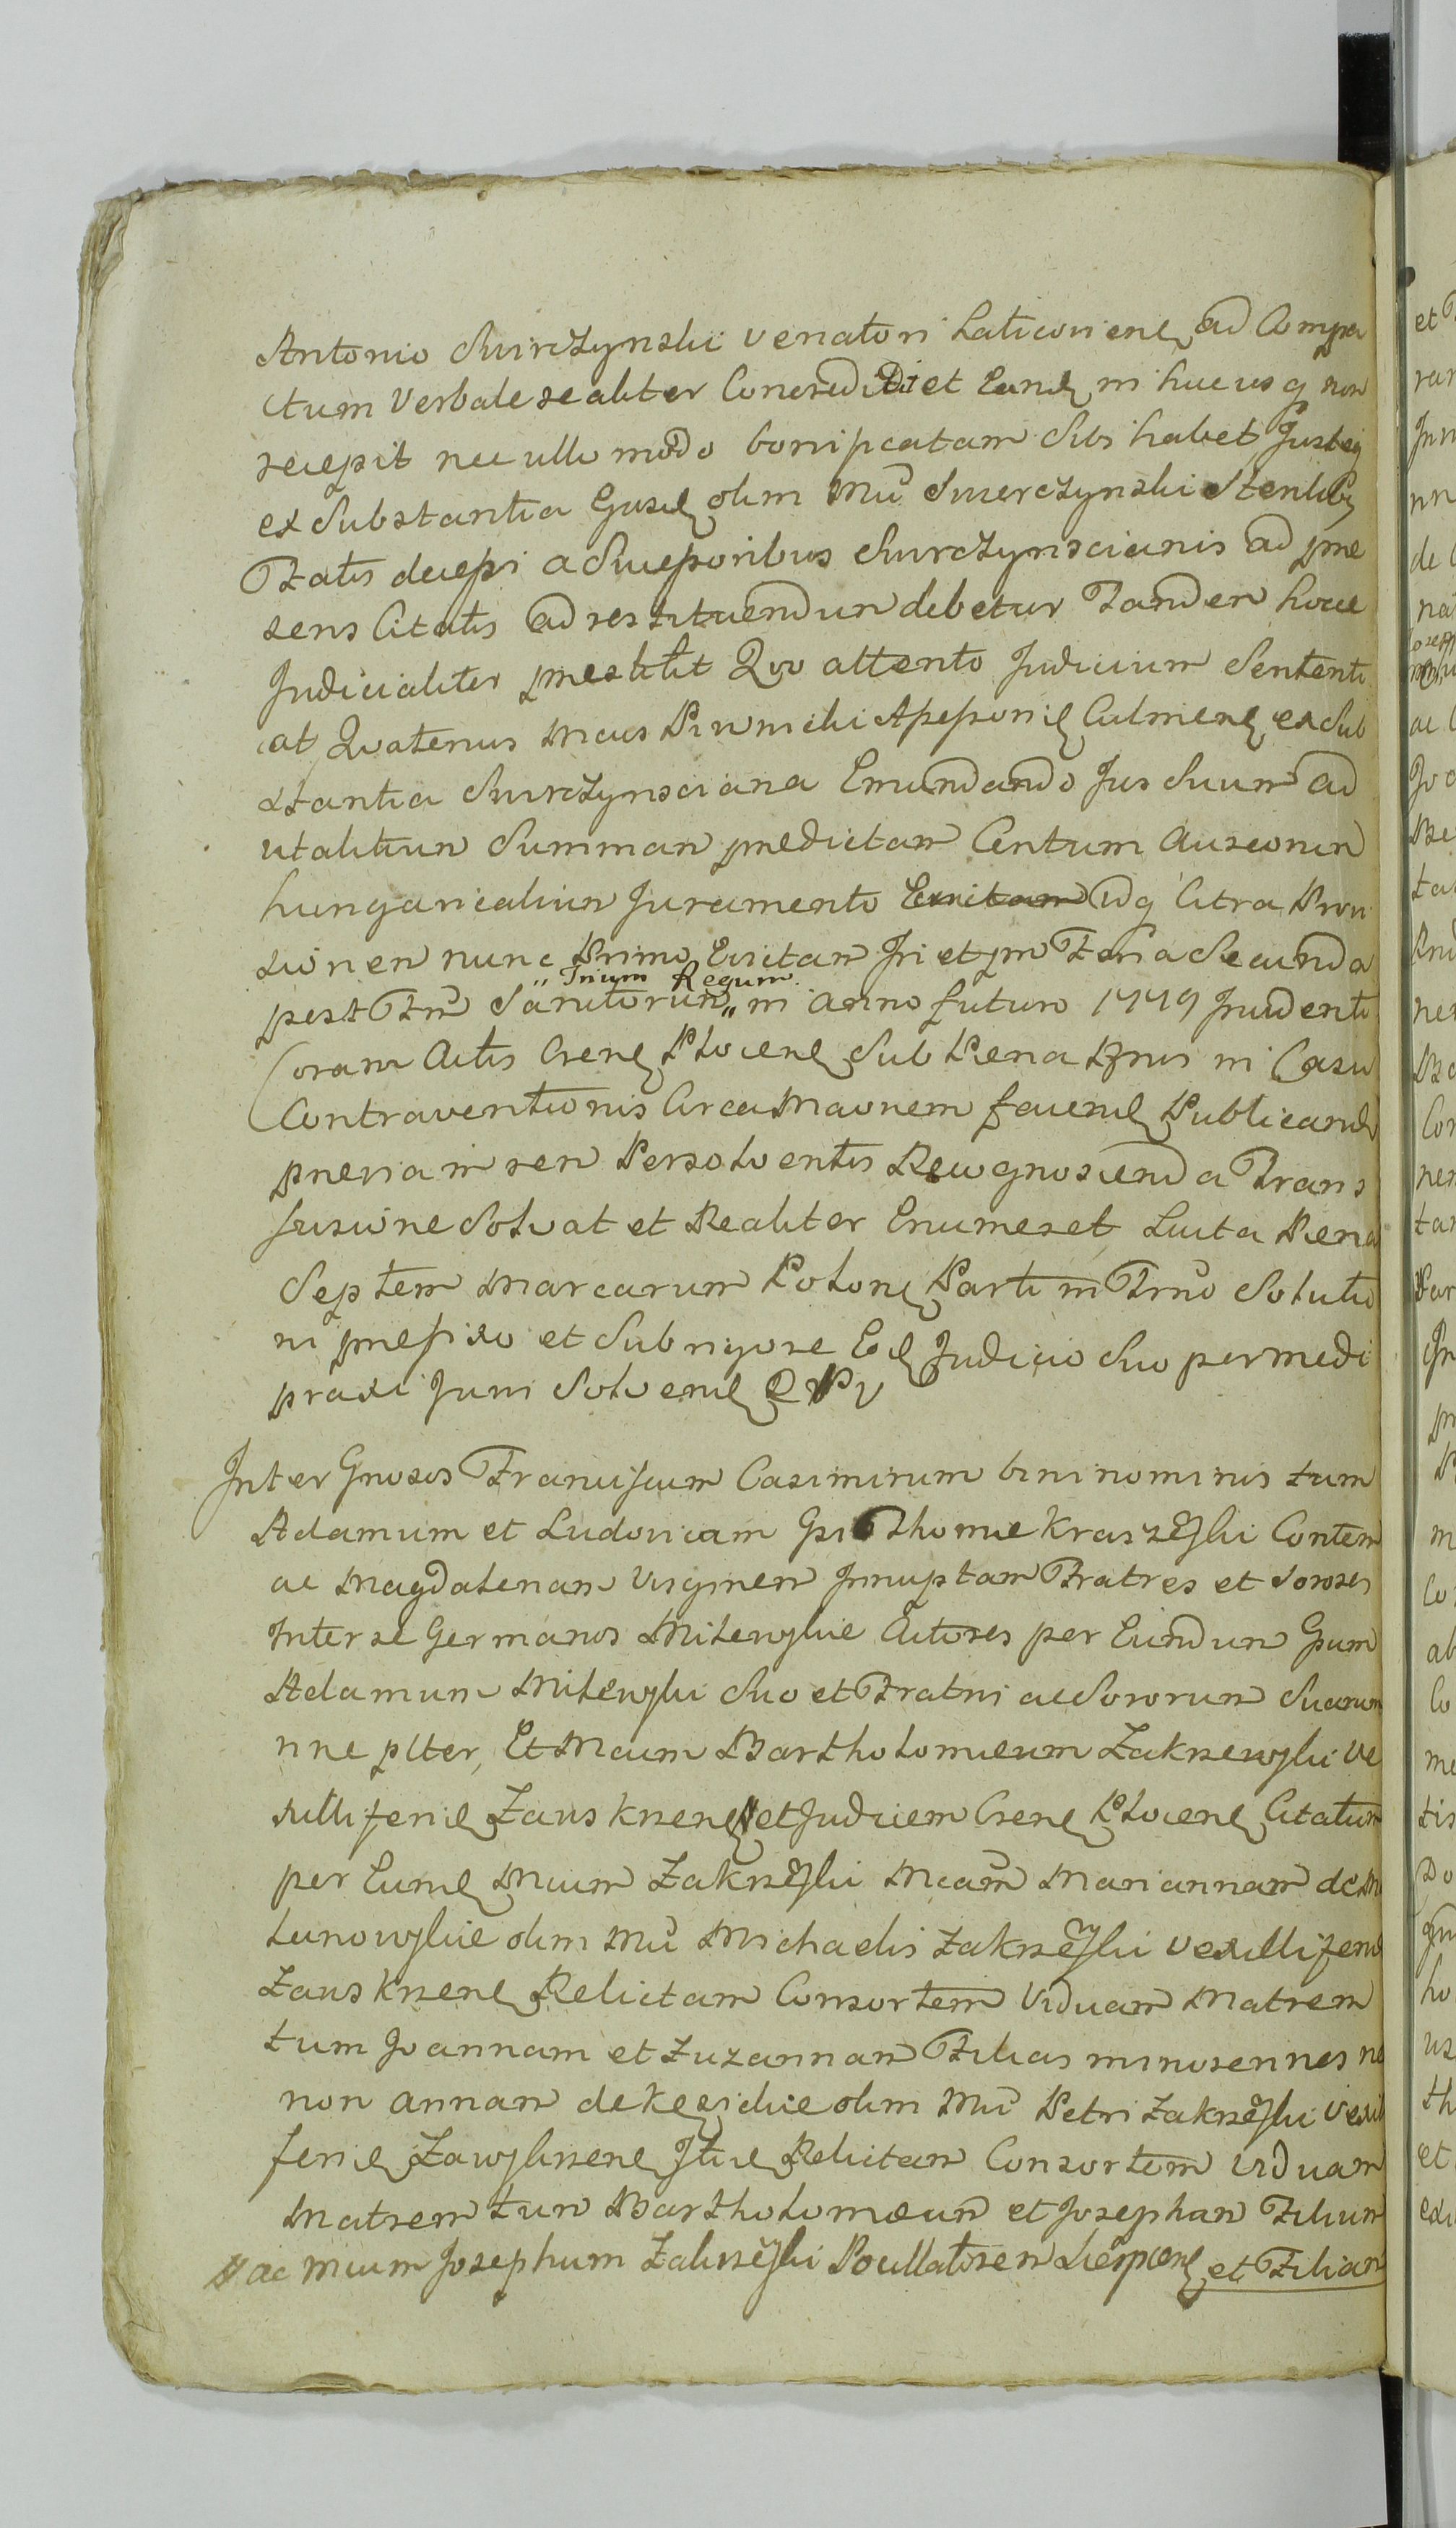 Antonio Swirczynski Venatori Laticoviens ad Compa
ctum Verbale realiter Concredidit et Eand in hucusq non
recepit nec ullo modo bonificatam Sibi habet Justeq
ex Substantia Gnsd olim Mci Swierczynski Sterilis
Fratis decepi a Successoribus Swirczynscianis ad pne
sens Citatis ad restituendum debetur Tandem hocce
Judicialiter prestitit Quo attento Judicium Sententi
at Quatenus Mcus Piwnicki Apponis Culmens ex Sub
stantia Swirczynsciana Emundando Jus Suum ad
utalitium Summam predictam Centum Aureorum
hungaricalium Juramento Euitam idq Citra Prou
sionem nunc Primo Euitam Iri et pm Feria Secunda
post Fm Sanctorum „ Trium Regum „ in anno futuro 1779 Incidenti
Coram Actis Crens Plocens Sub Pena Bnis in Casu
Contraventionis Circa Maonem fauens Publicand
previa in rem Persolventis Recognoscenda Trans
fusione Solvat et Realiter Enumeret Luita Pena
Septem Marcarum Polon Parti in Trno Solutio
ni prefixo et Sub rigore Eod Judicio Suo per medi
praxi Juri Solvend D P V
Inter Gnosos Franciscum Casimirum bini nominis tum
Adamum et Ludovicam Gsi Thomæ Kraszewski Contem
ac Magdalenam Virginem Innuptam Fratres et Sorores
Inter se Germanos Milewskie Actores per Eundum Gsum
Adamum Milewski Suo et Fratri ac Sororum Suarum
nne plter, Et Mcum Bartholomæum Zakrzewski Ve
xilliferie Zauskrzens et Judicem Crens Plocens Citatum
per Eund Mcum Zakrzewski Mcam Mariannam de M
lunowskie olim Mci Michaelis Zakrzewski Vexilliferi
Zauskrzens Relictam Consortem Viduam Matrem
tum Joannam et Zuzannam Filias minorennes ne
non Annam de Kezickie olim Mci Petri Zakrzewski Vexil
feri Zawskrzens Itid Relictam Consortem Viduam
Matrem tum Bartholomæum et Josepham Filium
ac Mcum Josephum Zakrzewski Pocillatorem Liepcens et Filiam